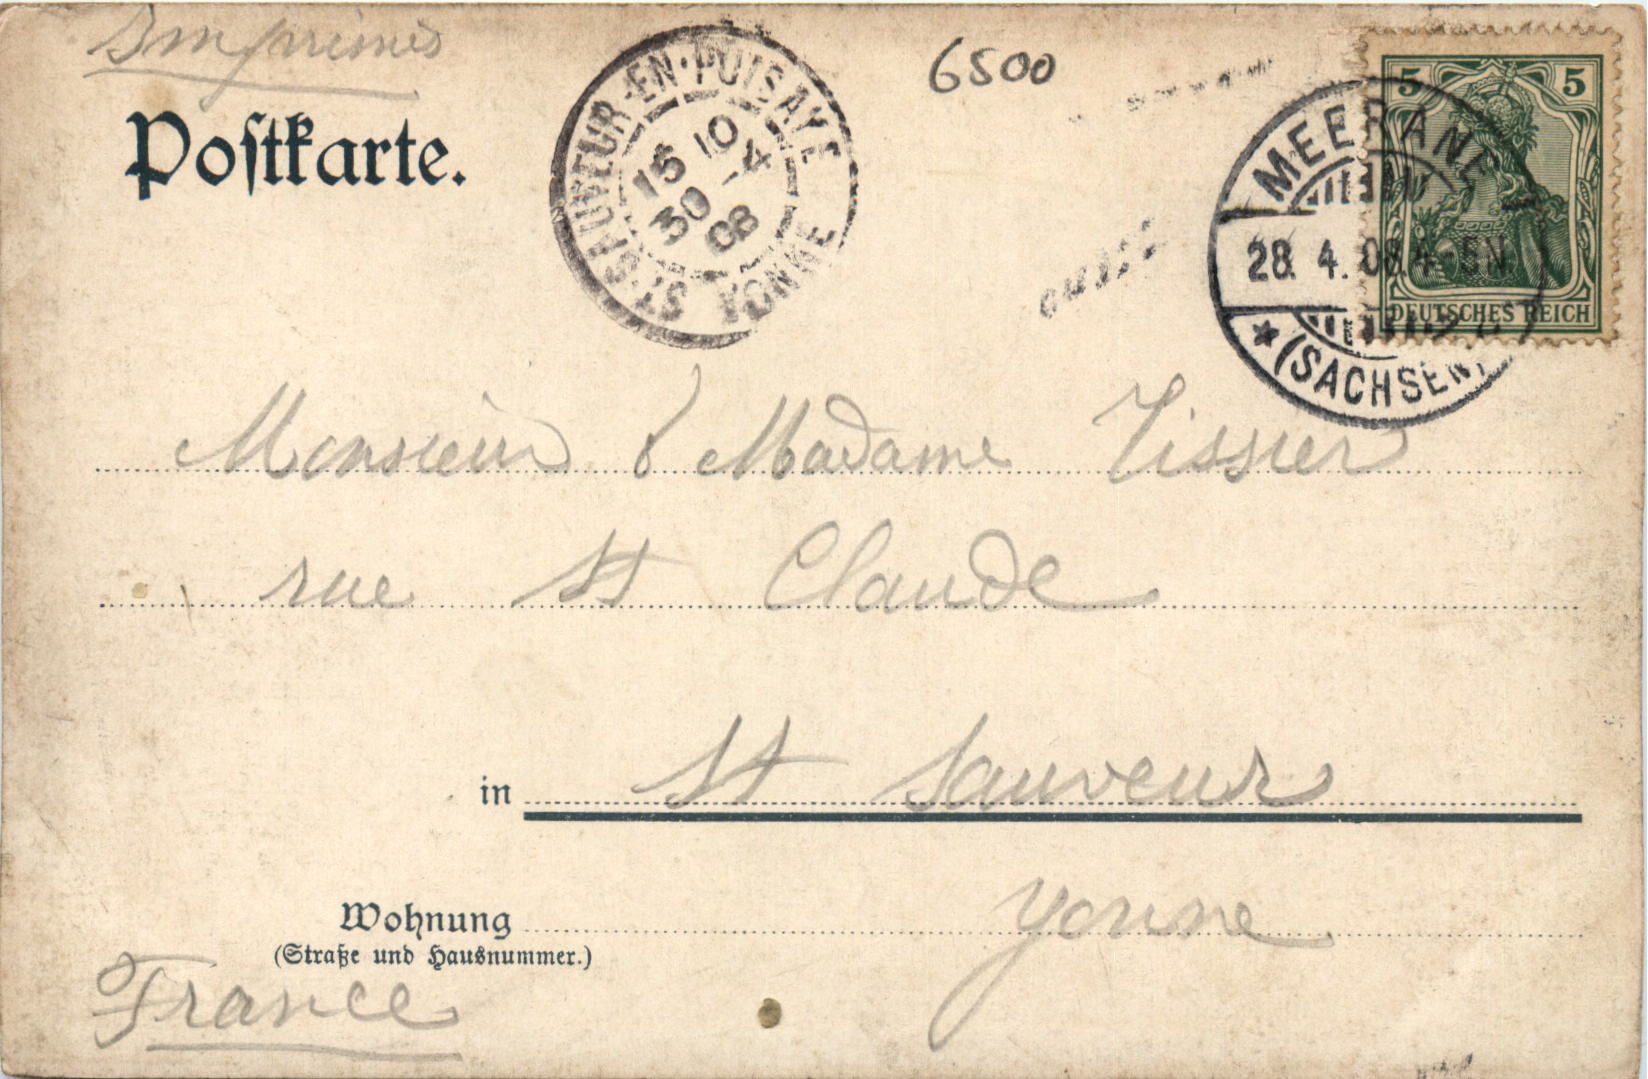 Imprimés
Postkarte.
ST-SAUVEUR-EN-PUISAYE
15 10
30 -4
08
YONNE
6500
5 5
DEUTSCHES REICH
MEERANE
28. 4. 08. 4-5N.
(SACHSEN)
Monsieur & Madame Tissier
rue St Claude
in St Sauveur
Wohnung Yonne
(Straße und Hausnummer.)
France